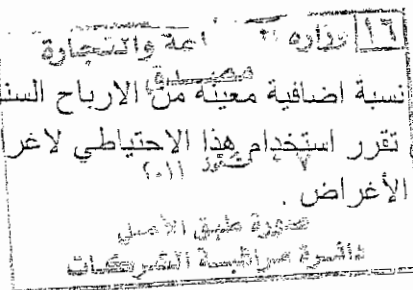 ١٦ وزارة الصناعة والتجارة
مصدق
نسبة اضافية معينة من الارباح السنـ
تقرر استخدام هذا الاحتياطي لاغرا
٧ تموز ٢٠١١
الأغراض .
صورة طبق الأصل
دائرة مراقبة الشركات